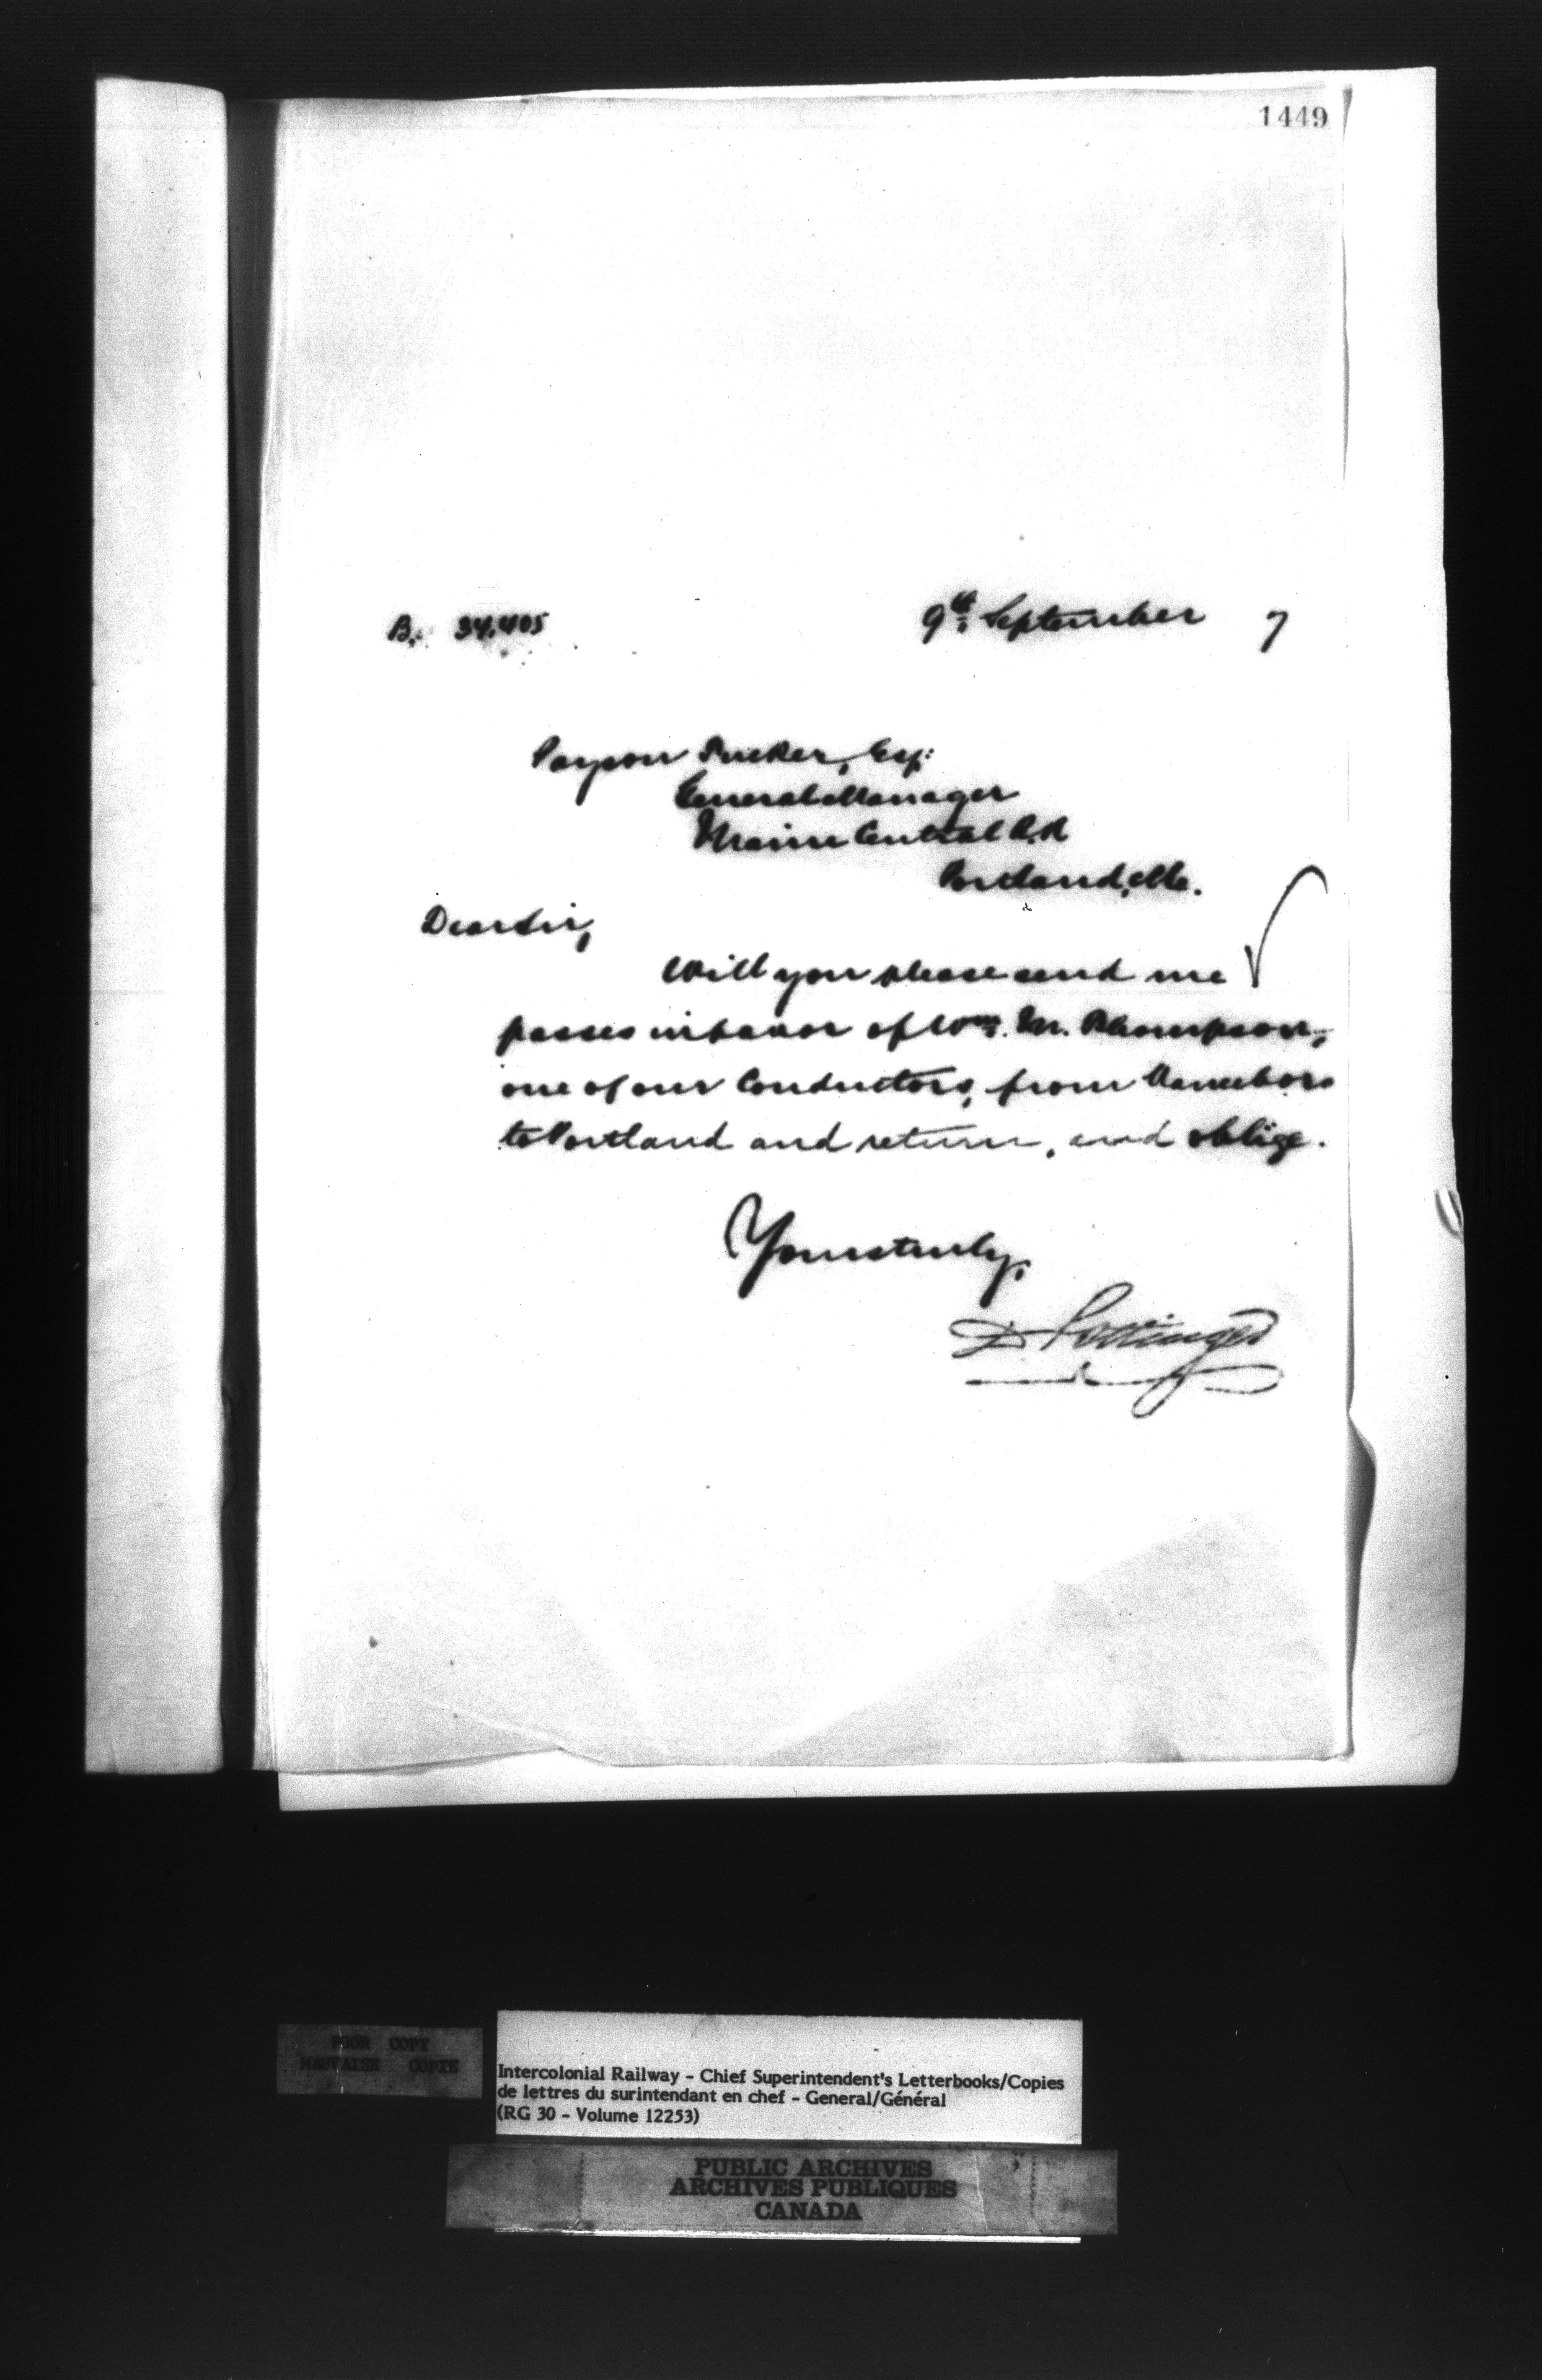 1449
B. 34,405
9th September 7
Payson Tucker, Esq:
General Manager
Maine Central R.R
Portland, Me.
Dear Sir,
Will you please send me
passes in favor of Wm. M. Thompson,
one of our Conductors, from Vanceboro
to Portland and return, and oblige.
Yours truly,
D Pottinger
POOR COPY
MAUVAISE COPIE
Intercolonial Railway - Chief Superintendent's Letterbooks/Copies
de lettres du surintendant en chef - General/Général
(RG 30 - Volume 12253)
PUBLIC ARCHIVES
ARCHIVES PUBLIQUES
CANADA